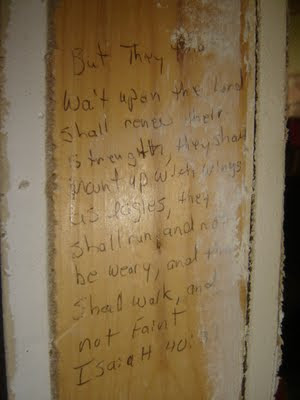 But They
Wait upon the Lord
shall renew their
strength, they shall
mount up with wings
as Eagles, they
shall run, and not
be weary, and
shall walk, and
not faint
Isaiah 40:31